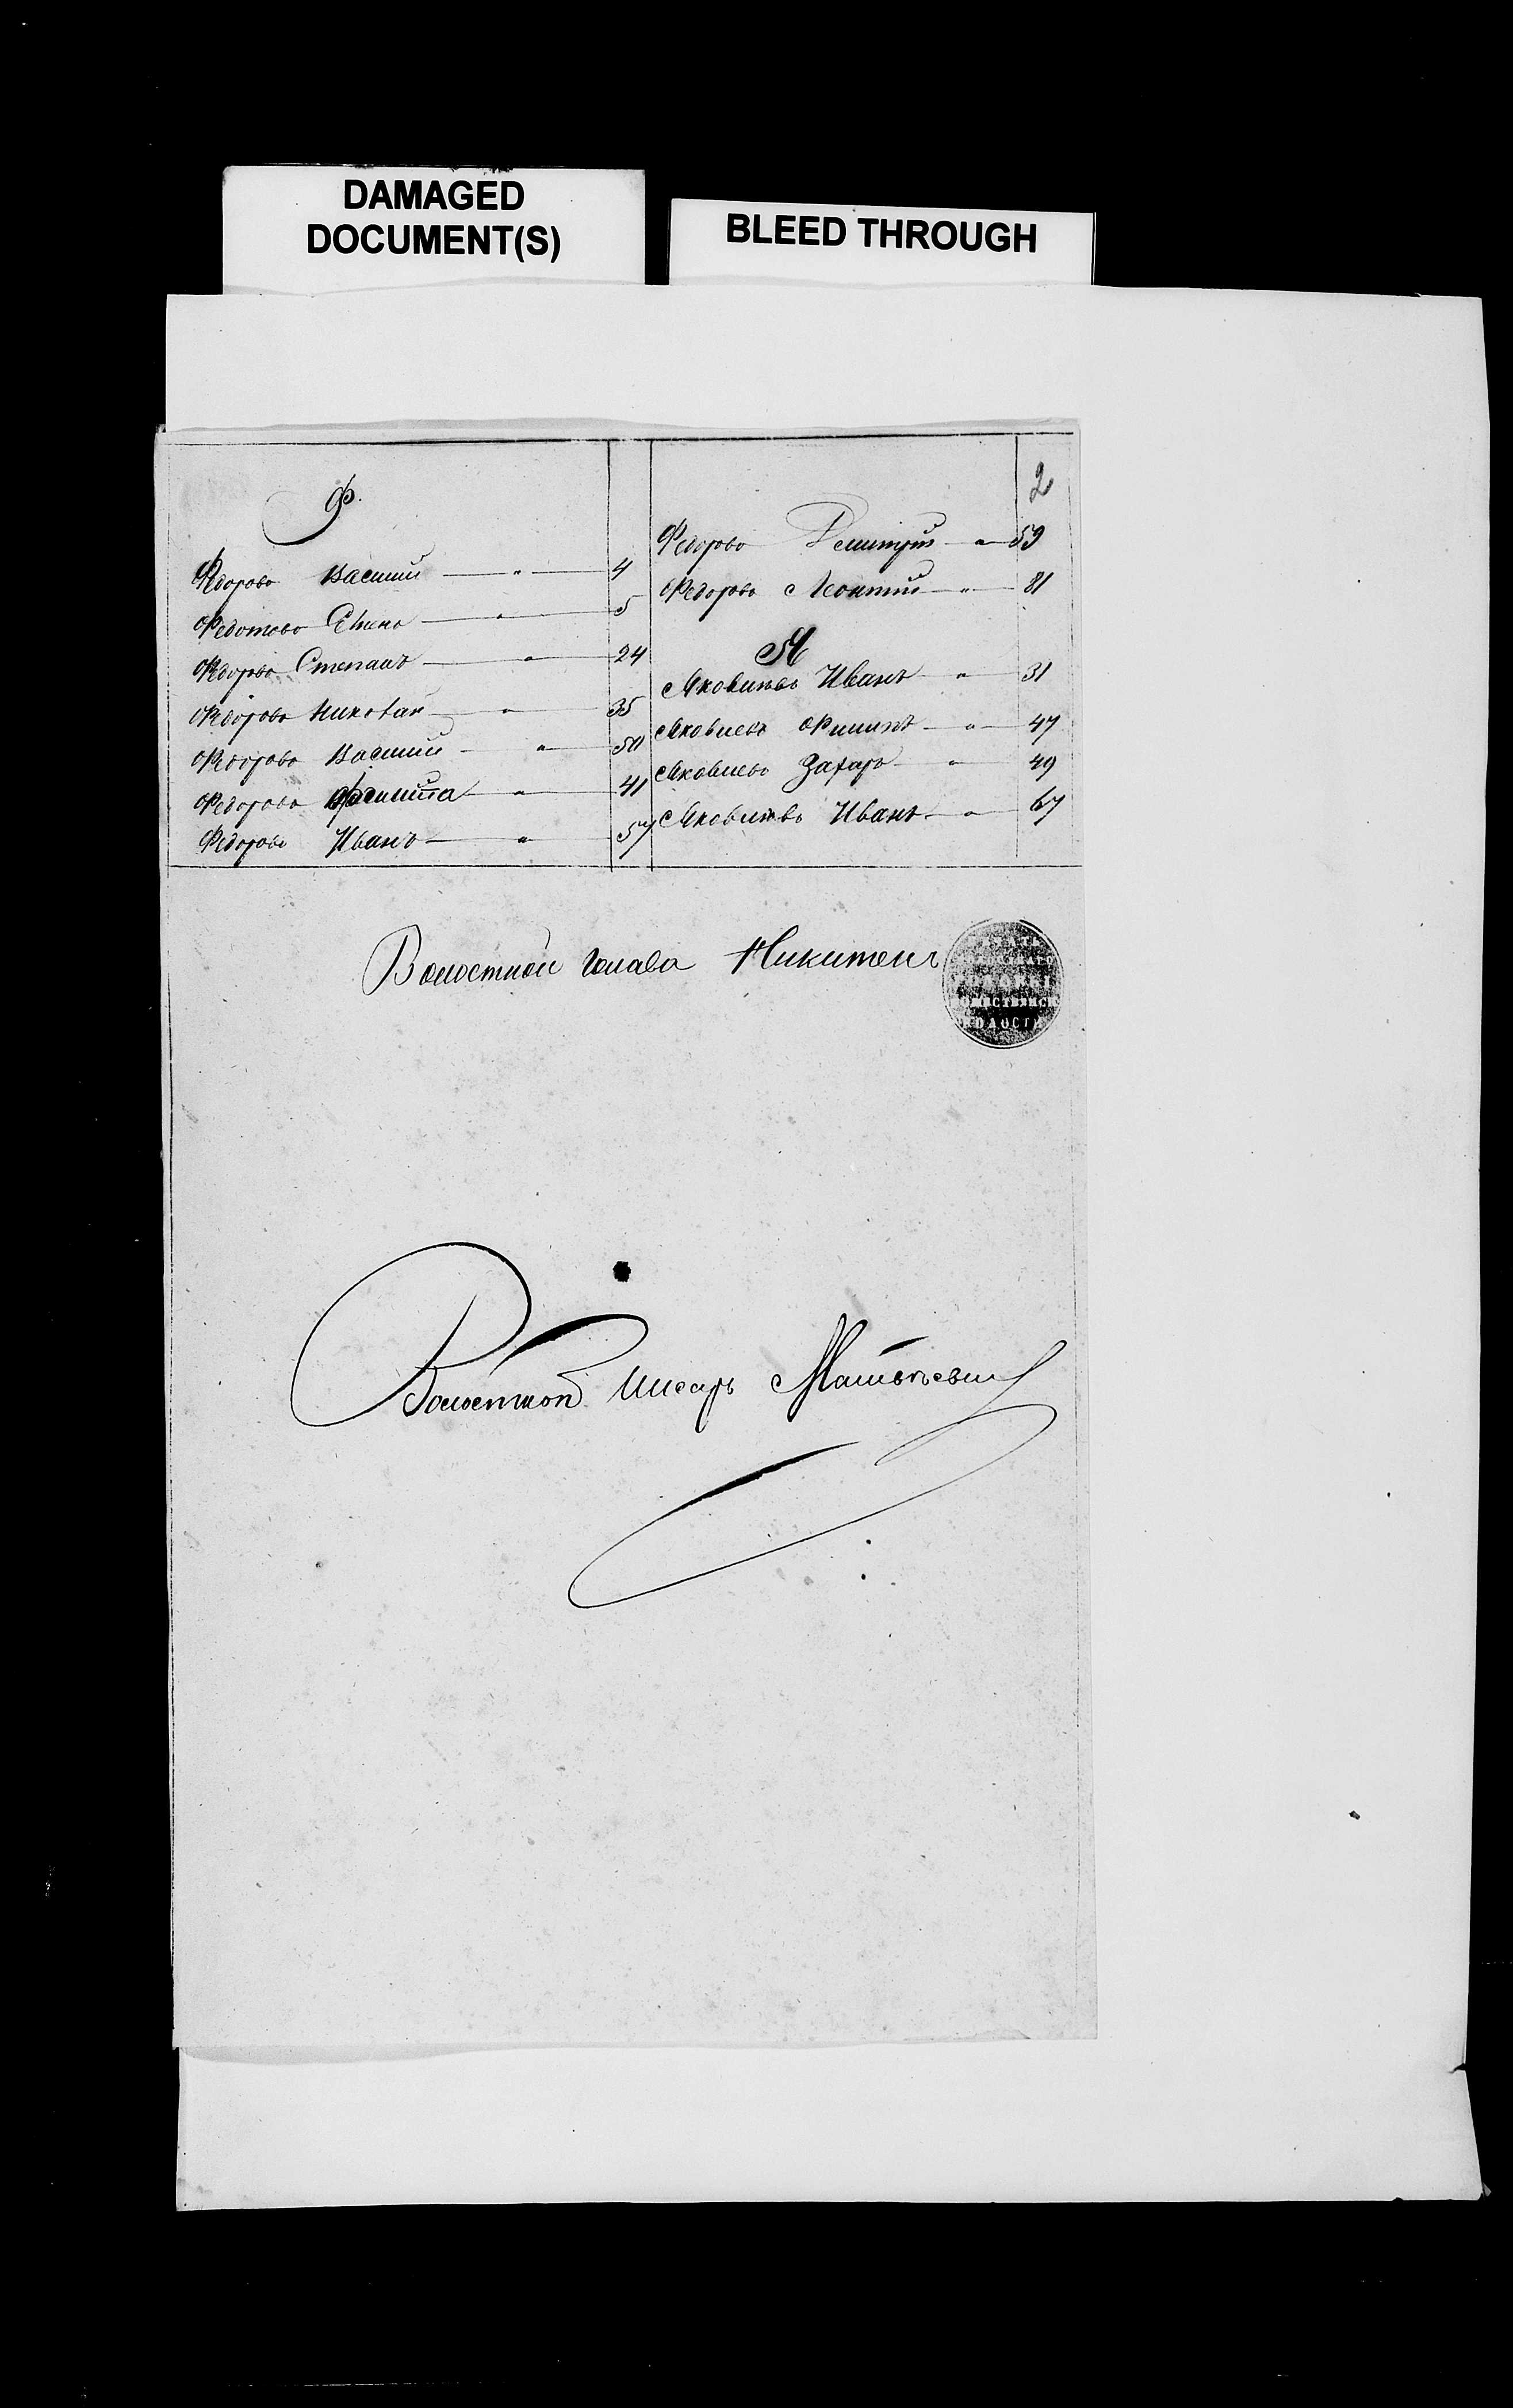 DAMAGED
DOCUMENT(S)
BLEED THROUGH
2
Ф.
Федоровъ Василий — " — 4
Федотовъ — " — 5
Федоровъ Степанъ — " — 24
Федоровъ Николай — " — 35
Федоровъ Василий — "
Федоровъ — " — 41
Федоровъ Иванъ — " — 57
Федоровъ Дмитрий — " — 59
Федоровъ Леонтий — " — 81
Я
Яковлевъ Иванъ — " — 31
Яковлевъ Филипъ — " — 47
Яковлевъ Захаръ — " — 49
Яковлевъ Иванъ — " — 67
Волостной голава Никитенъ
ВОЛОСТИ
Волостной писарь